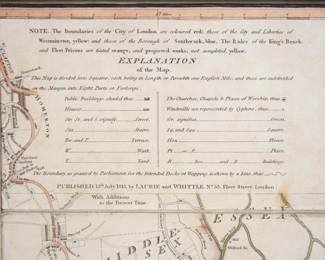 NOTE. The Boundaries of the City of London are coloured red: those of the City and Liberties of
Westminster, yellow: and those of the Borough of Southwark, blue. The Rules of the King's Bench
and Fleet Prisons are tinted orange, and proposed works, not completed, yellow.
EXPLANATION
of the Map.
This Map is divided into Squares, each being in Length or Breadth one English Mile, and these are subdivided
on the Margin into Eight Parts or Furlongs.
Public Buildings shaded thus
The Churches, Chapels & Places of Worship, thus
Houses
Windmills are represented by Cyphers, thus
Str. St. and S. signify Street.
Sta Stairs.
Sq. and Squ. Square.
Ter and T. Terrace.
Hou. House.
W. Walk.
Pl. or P. Place.
Y. Yard.
B. Row and B. Buildings.
The Boundary as granted by Parliament for the Intended Docks at Wapping, is shewn by a Line thus
PUBLISHED 12th July 1815, by LAURIE and WHITTLE, No. 53, Fleet Street, London.
With Additions
to the Present Time.
HOMERTON
MIDDLE
SEX
ESSEX